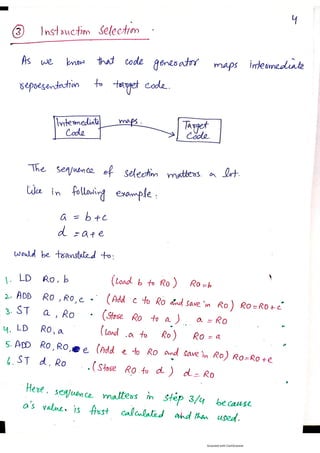 4
③ Instruction Selection
As we know that code generator maps intermediate
representation to target code.
Intermediate Code maps. Target Code.
The sequence of selection matters a lot.
Like in following example:
a = b + c
d = a + e
would be translated to:
1. LD R0, b (Load b to R0) R0 = b
2. ADD R0, R0, c • (Add c to R0 and save in R0) R0 = R0 + c
3. ST a, R0 • (Store R0 to a) a = R0
4. LD R0, a (Load a to R0) R0 = a
5. ADD R0, R0, e (Add e to R0 and save in R0) R0 = R0 + e
6. ST d, R0 • (Store R0 to d) d = R0
Here, sequence matters in step 3/4 because
a's value is first calculated and then used.
Scanned with CamScanner